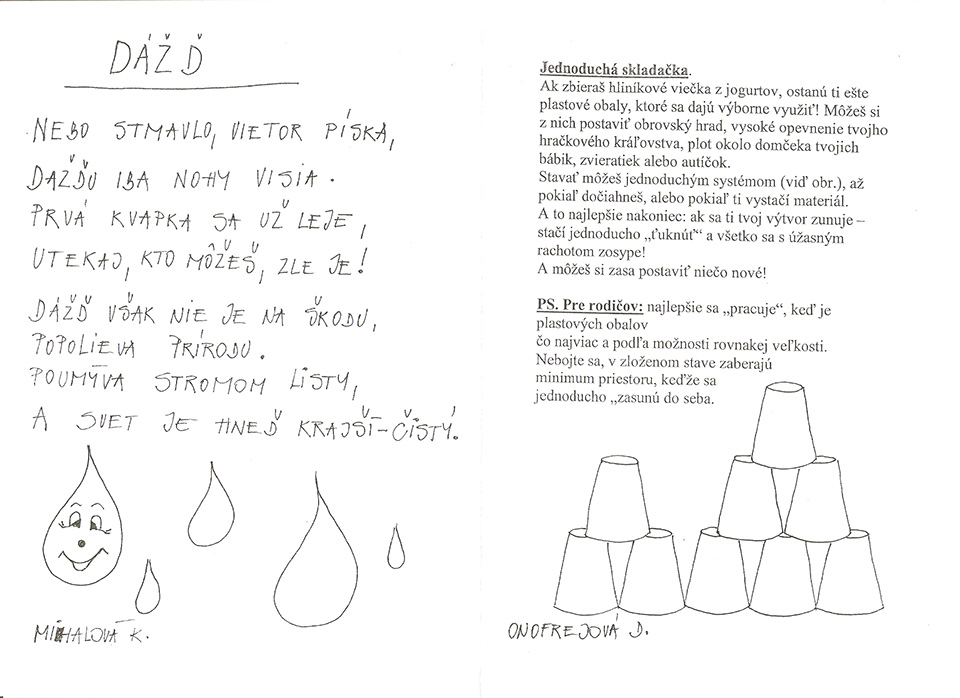 DÁŽĎ
NEBO STMAVLO, VIETOR PÍSKA,
DAŽĎU IBA NOHY VISIA.
PRVÁ KVAPKA SA UŽ LEJE,
UTEKAJ, KTO MÔŽEŠ, ZLE JE!
DÁŽĎ VŠAK NIE JE NA ŠKODU,
POPOLIEVA PRÍRODU.
POUMÝVA STROMOM LÍSTY,
A SVET JE HNEĎ KRAJŠÍ-ČISTÝ.
MIHALOVÁ K.
Jednoduchá skladačka.
Ak zbieraš hliníkové viečka z jogurtov, ostanú ti ešte
plastové obaly, ktoré sa dajú výborne využiť! Môžeš si
z nich postaviť obrovský hrad, vysoké opevnenie tvojho
hračkového kráľovstva, plot okolo domčeka tvojich
bábik, zvieratiek alebo autíčok.
Stavať môžeš jednoduchým systémom (viď obr.), až
pokiaľ dočiahneš, alebo pokiaľ ti vystačí materiál.
A to najlepšie nakoniec: ak sa ti tvoj výtvor zunuje –
stačí jednoducho „ťuknúť“ a všetko sa s úžasným
rachotom zosype!
A môžeš si zasa postaviť niečo nové!
PS. Pre rodičov: najlepšie sa „pracuje“, keď je
plastových obalov
čo najviac a podľa možnosti rovnakej veľkosti.
Nebojte sa, v zloženom stave zaberajú
minimum priestoru, keďže sa
jednoducho „zasunú do seba.
ONOFREJOVÁ D.